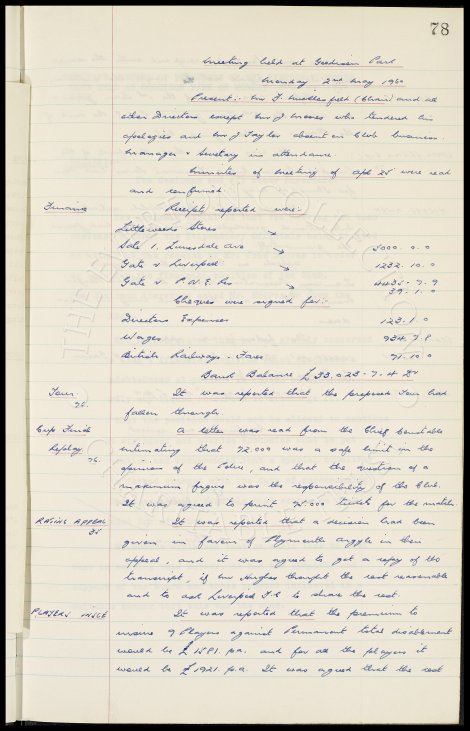 78
Meeting held at Goodison Park
Monday 2nd May 1960
Present:- Mr F. Micklesfield (Chair) and all
other Directors except Mr J Moores who tendered his
apologies and Mr J Taylor absent on Club business.
Manager & Secretary in attendance
Minutes of meeting of Apl 25 were read
and confirmed.
Finance Receipts reported were:-
Littlewoods Stores
Sale 1, Lunesdale Ave 3000. 0. 0
Gate v Liverpool 1232. 10. 0
Gate v P.N.E. Res 39. 1. 0
Cheques were signed for:-
Directors Expenses 123. 1. 0
Wages 934. 7. 8
British Railways. Fares 71. 10. 0
Bank Balance £33.023 - 7. 4
Tour It was reported that the proposed Tour had
76. fallen through.
Cup Final A letter was read from the Chief Constable
Replay intimating that 72.000 was a safe limit in the
76. opinion of the Police, and that the question of a
maximum figure was the responsibility of the Club.
It was agreed to print 75.000 tickets for the match.
RATING APPEAL It was reported that a decision had been
given in favour of Plymouth Argyle in their
appeal, and it was agreed to get a copy of the
transcript, if Mr Hughes thought the cost reasonable
and to ask Liverpool F.C to share the cost.
PLAYERS INSCE It was reported that the premium to
insure 9 Players against Permanent total disablement
would be £1581. p.a. and for all the players it
would be £1921. p.a. It was agreed that the cost